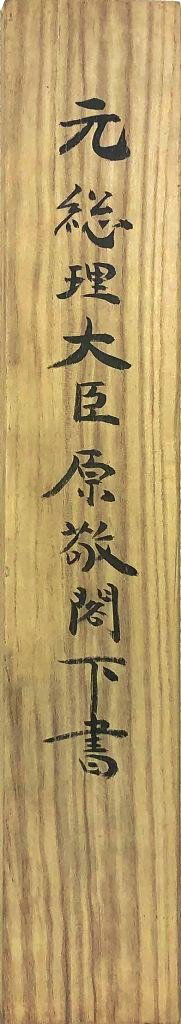 元総理大臣原敬閣下書